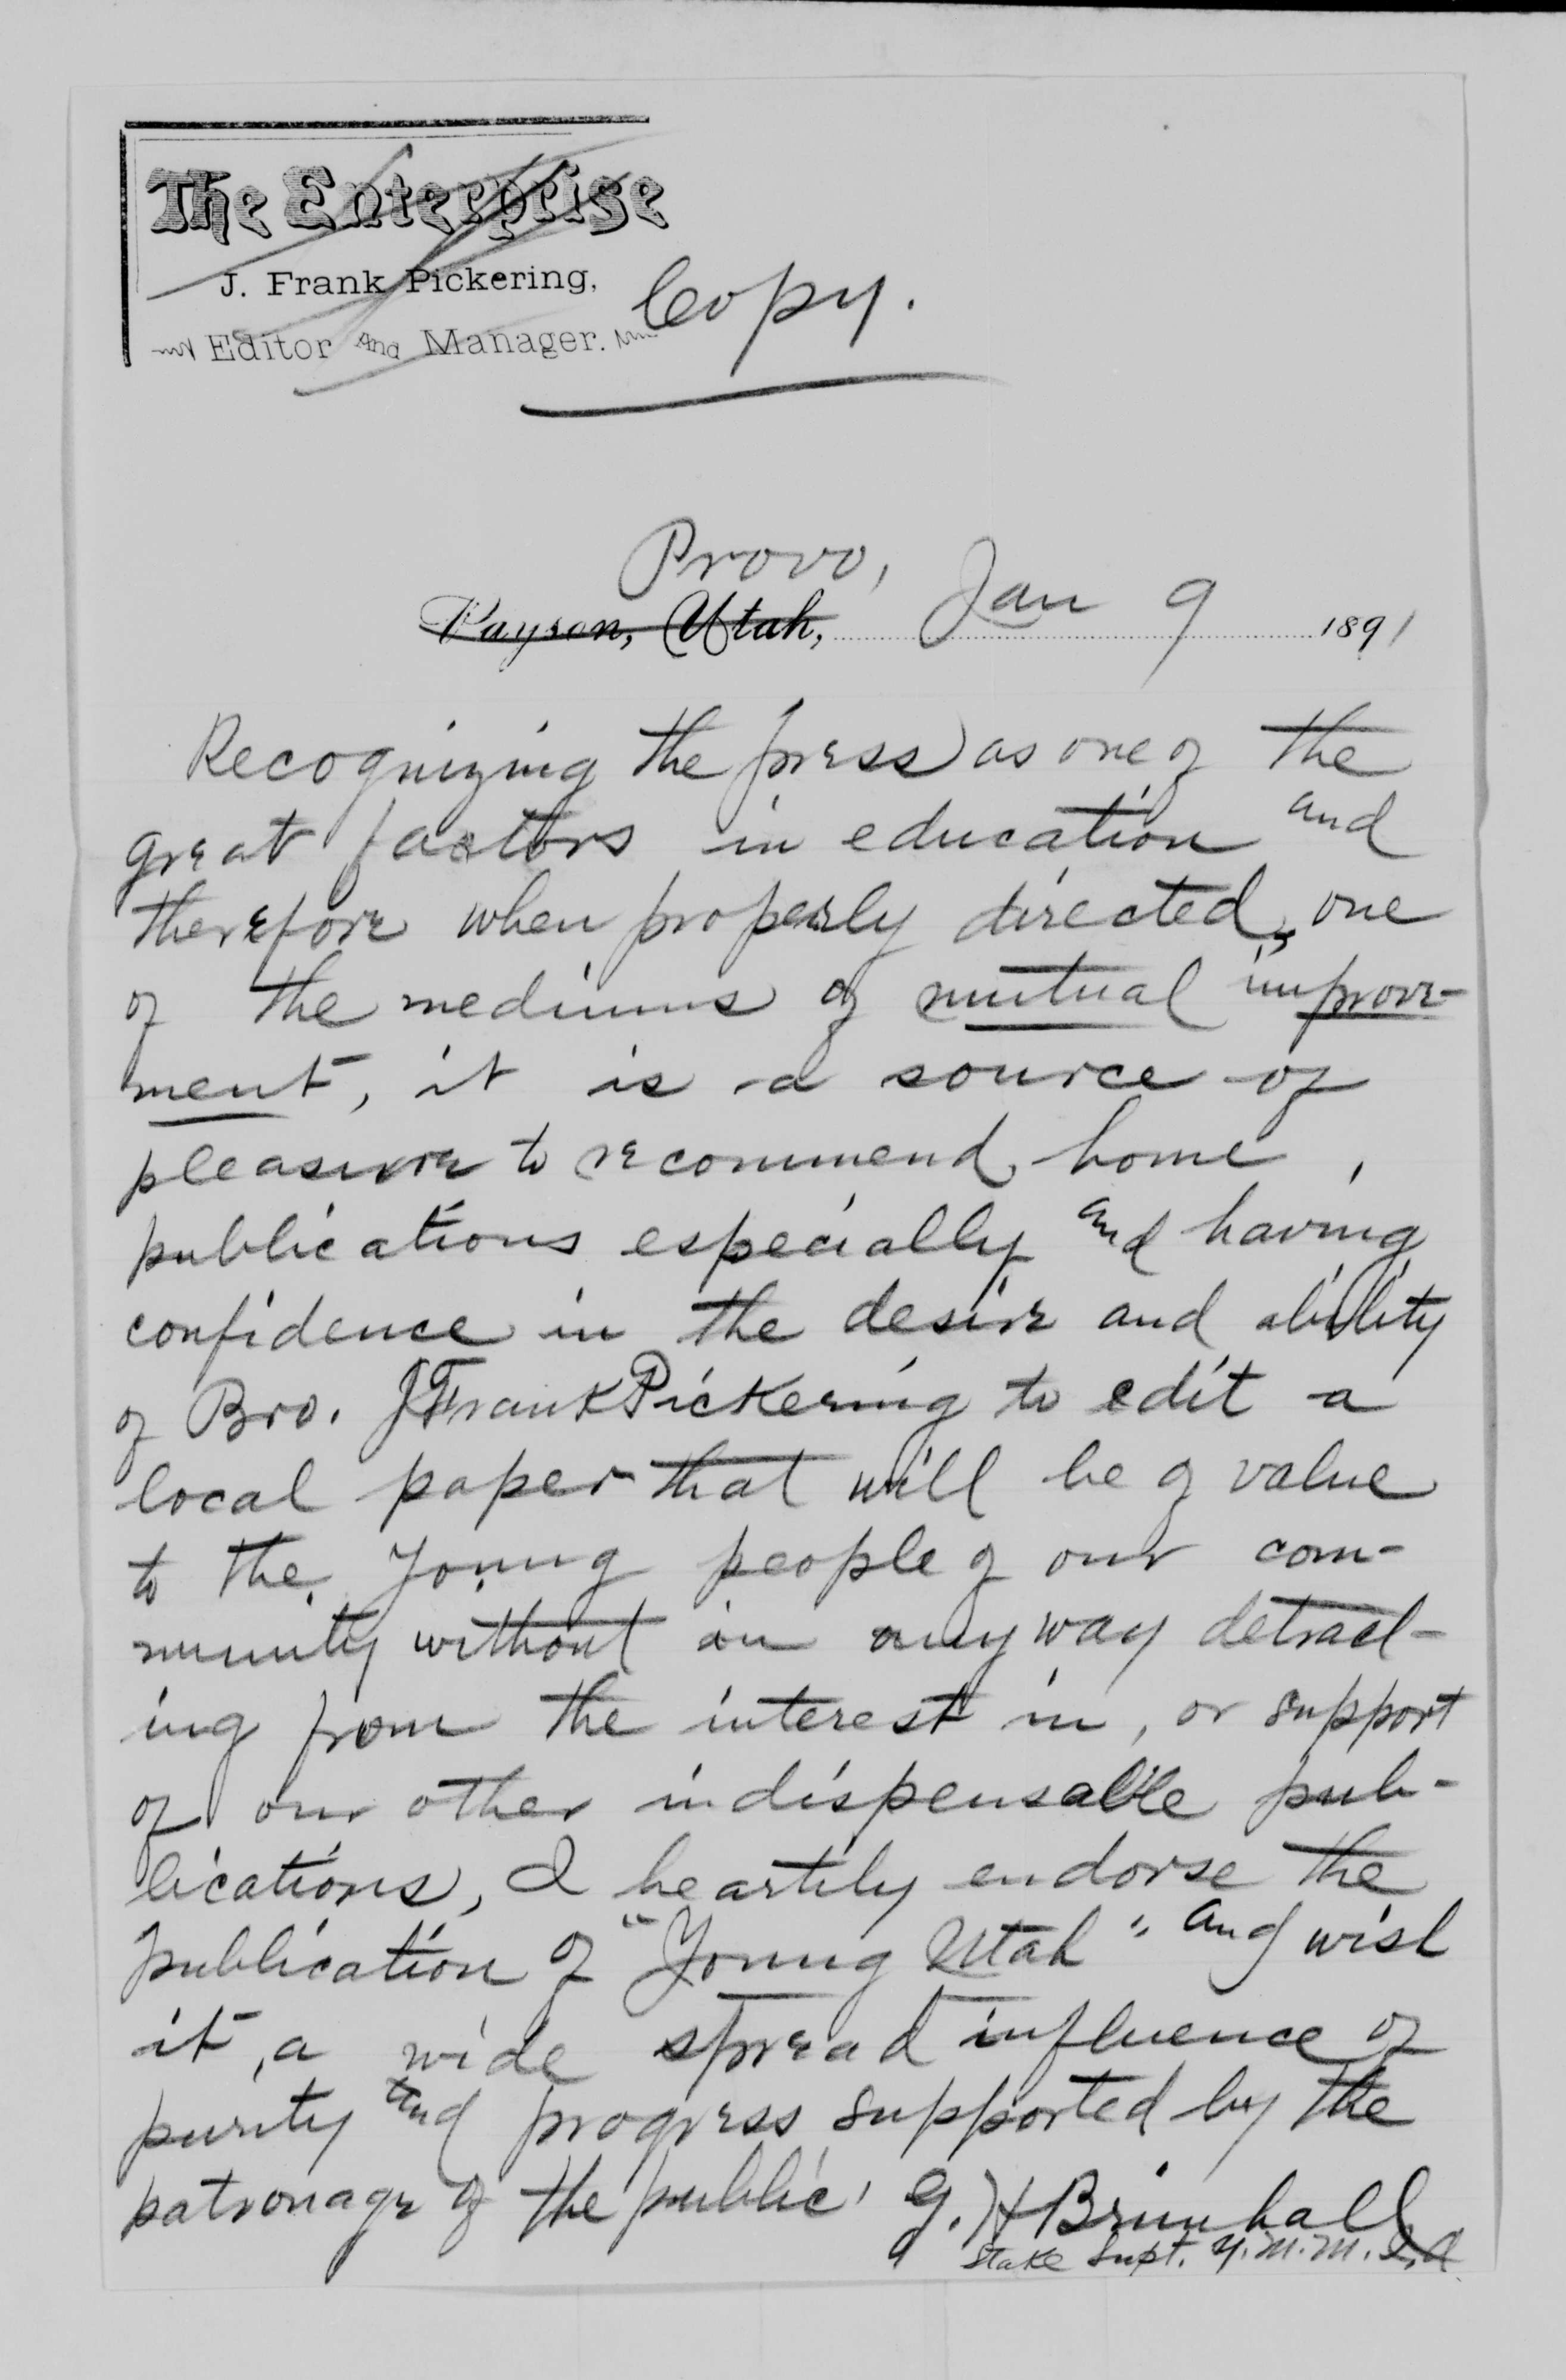 The Enterprise
J. Frank Pickering,
Editor and Manager.
Copy.
Provo,
Payson, Utah, Jan 9 1891
Recognizing the press as one of the
great factors in education and
therefore when properly directed, one
of the mediums of mutual improve-
ment, it is a source of
pleasure to recommend home
publications especially, and having
confidence in the desire and ability
of Bro. J Frank Pickering to edit a
local paper that will be of value
to the young people of our com-
munity without in any way detract-
ing from the interest in, or support
of our other indispensable pub-
lications, I heartily endorse the
publication of "Young Utah" and wish
it, a wide spread influence of
purity and progress supported by the
patronage of the public. G. H Brimhall
Stake Supt. Y.M.M.I.A